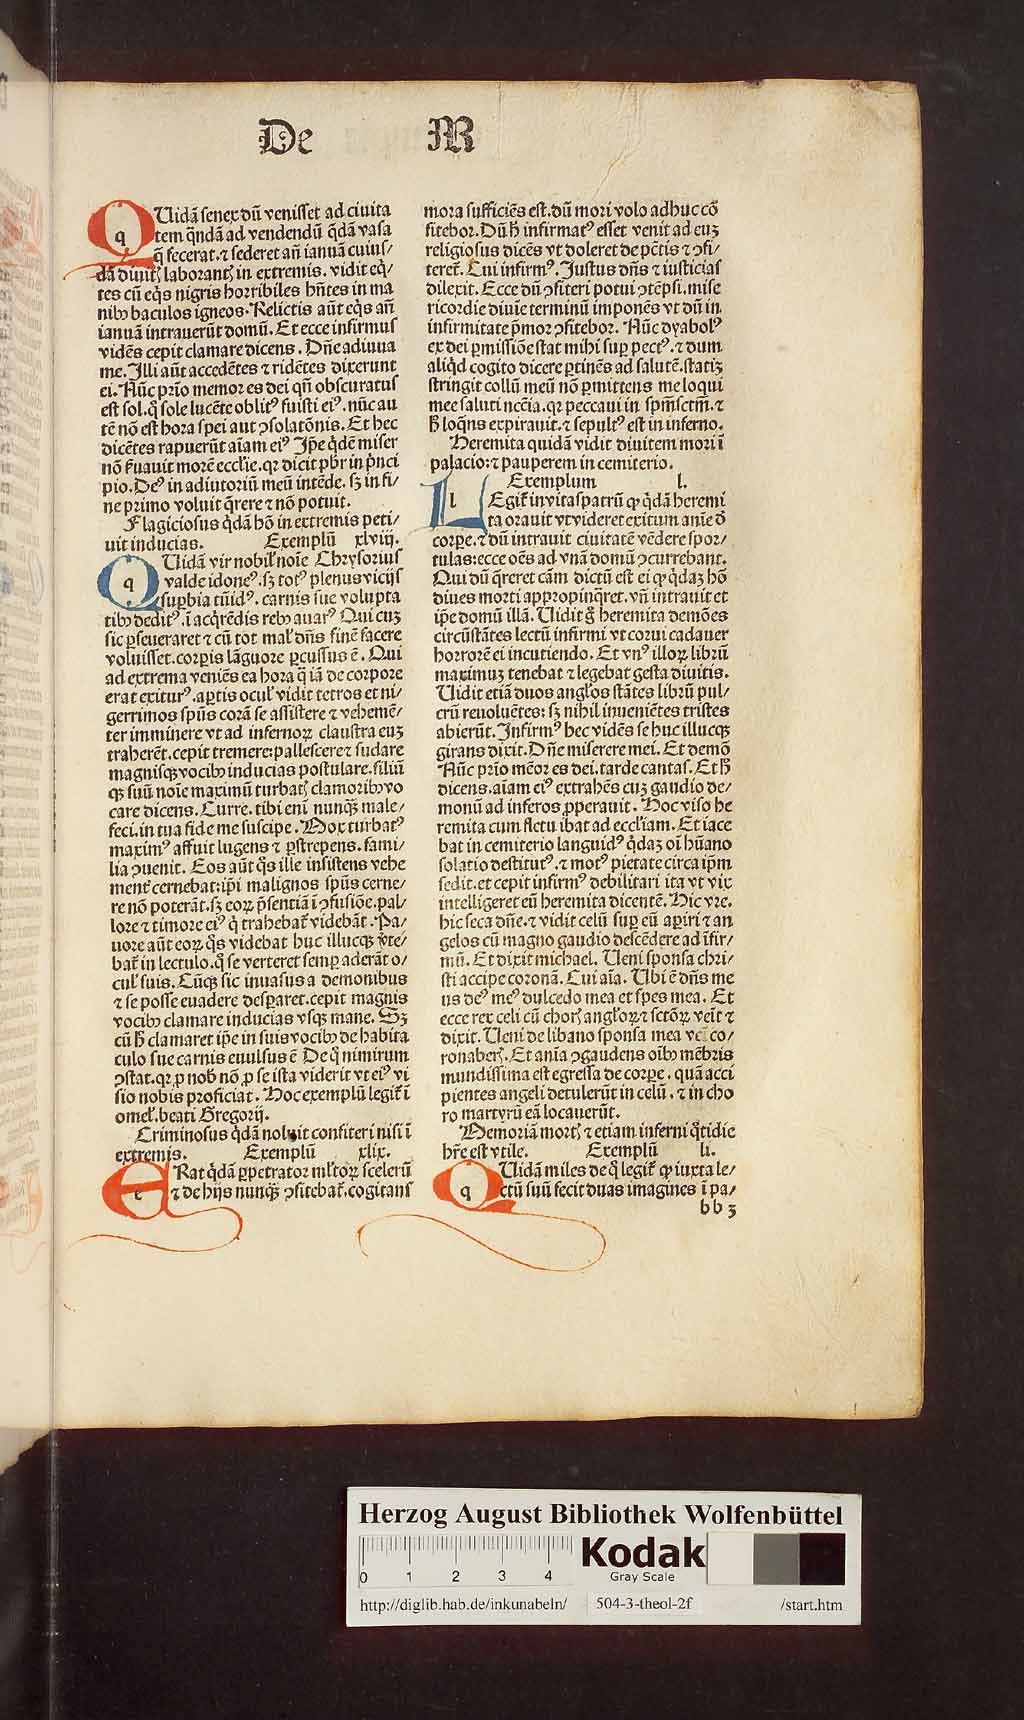 De M
QUidã senex dũ venisset ad ciuita
tem q̃ndã ad vendendũ q̃dã vasa
q̃ fecerat. ⁊ sederet añ ianuã cuius/
dã diuitꝭ laborantꝭ in extremis. vidit eq̃/
tes cũ eq̃s nigris horribiles hñtes in ma
nibꝰ baculos igneos. Relictis aũt eq̃s añ
ianuã intrauerũt domũ. Et ecce infirmus
vidẽs cepit clamare dicens. Dñe adiuua
me. Illi aũt accedẽtes ⁊ ridẽtes dixerunt
ei. Nũc prĩo memor es dei qñ obscuratus
est sol. q̃ sole lucẽte oblitꝰ fuisti eiꝰ. nũc au
tẽ nõ est hora spei aut ꝯsolatõnis. Et hec
dicẽtes rapuerũt aĩam eiꝰ Ip̃e q̃dẽ miser
nõ ẜuauit morẽ ecclie. qꝛ dicit pb̃r in p̃nci
pio. Deꝰ in adiutoriũ meũ intẽde. sꝫ in fi/
ne primo voluit q̃rere ⁊ nõ potuit.
Flagiciosus q̃dã hõ in extremis peti/
uit inducias. Exemplũ xlviij.
QUidã vir nobil̛ noĩe Chrysorius
valde idoneꝰ. sꝫ totꝰ plenus vicijs
suꝑbia tũidꝰ. carnis sue volupta
tibꝰ deditꝰ. ĩ acq̃rẽdis rebꝰ auarꝰ Qui cuꝫ
sic ꝑseueraret ⁊ cũ tot mal̛ dñs finẽ facere
voluisset. corꝑis lãguore ꝑcussus ẽ. Qui
ad extrema veniẽs ea hora q̃ iã de corpore
erat exiturꝰ. aꝑtis ocul̛ vidit tetros et ni/
gerrimos spũs corã se assistere ⁊ vehemẽ/
ter imminere vt ad infernoꝝ claustra euꝫ
traherẽt. cepit tremere: pallescere ⁊ sudare
magnisqꝫ vocibꝰ inducias postulare. filiũ
qꝫ suũ noĩe maximũ turbatꝭ clamoribꝰ vo
care dicens. Curre. tibi enĩ nunqꝫ male/
feci. in tua fide me suscipe. Mox turbatꝰ
maximꝰ affuit lugens ⁊ ꝑstrepens. fami/
lia ꝯuenit. Eos aũt q̃s ille insistens vehe
ment̃ cernebat: ip̃i malignos spũs cerne/
re nõ poterãt. sꝫ eoꝝ p̃sentiã ĩ ꝯfusiõe. pal/
lore ⁊ timore eiꝰ q̃ trahebat̃ videbãt. Pa/
uore aũt eoꝝ q̃s videbat huc illucqꝫ v̾te/
bat̃ in lectulo. q̃ se verteret semꝑ aderãt o/
cul̛ suis. Cũqꝫ sic inuasus a demonibus
⁊ se posse euadere desꝑaret. cepit magnis
vocibꝰ clamare inducias vsqꝫ mane. Sꝫ
cũ h̾ clamaret ip̃e in suis vocibꝰ de habita
culo sue carnis euulsus ẽ De q̃ nimirum
ꝯstat. qꝛ ꝓ nob̾ nõ ꝓ se ista viderit vt eiꝰ vi
sio nobis proficiat. Hoc exemplũ legit̃ ĩ
omel̛. beati Gregorij.
Criminosus q̃dã noluit confiteri nisi ĩ
extremis. Exemplũ xlix.
ERat q̃dã ꝑpetrator ml̛toꝝ scelerũ
⁊ de hijs nunqꝫ ꝯfitebat̃. cogitans
mora sufficiẽs est. dũ mori volo adhuc cõ
fitebor. Dũ h̾ infirmatꝰ esset venit ad euꝫ
religiosus dicẽs vt doleret de pctĩs ⁊ ꝯfi/
teret̃. Cui infirmꝰ. Justus dñs ⁊ iusticias
dilexit. Ecce dũ ꝯfiteri potui ꝯtẽpsi. mise
ricordie diuie terminũ imponẽs vt dũ in
infirmitate p̃mor ꝯfitebor. Nũc dyabolꝰ
ex dei ꝑmissiõe stat mihi suꝑ pectꝰ. ⁊ dum
aliq̃d cogito dicere ꝑtinẽs ad salutẽ. statiꝫ
stringit collũ meũ nõ ꝑmittens me loqui
mee saluti nccĩa. qꝛ peccaui in spm̃sctm̃. ⁊
h̾ loq̃ns expirauit. ⁊ sepultꝰ est in inferno.
Heremita quidã vidit diuitem mori ĩ
palacio: ⁊ pauperem in cemiterio.
Exemplum l.
LEgit̃ in vitaspatrũ ꝙ q̃dã heremi
ta orauit vt videret exitum anĩe õ
corꝑe. ⁊ dũ intrauit ciuitatẽ vẽdere spor/
tulas: ecce oẽs ad vnã domũ ꝯcurrebant.
Qui dũ q̃reret cãm dictũ est ei ꝙ q̃daꝫ hõ
diues morti appropinq̃ret. vñ intrauit et
ip̃e domũ illã. Uidit g̃ heremita demões
circũstãtes lectũ infirmi vt corui cadauer
horrorẽ ei incutiendo. Et vnꝰ illoꝝ librũ
maximuꝫ tenebat ⁊ legebat gesta diuitis.
Uidit etiã duos angl̛os stãtes librũ pul/
crũ reuoluẽtes: sꝫ nihil inueniẽtes tristes
abierũt. Infirmꝰ hec vidẽs se huc illucqꝫ
girans dixit. Dñe miserere mei. Et demõ
Nũc prĩo mẽor es dei. tarde cantas. Et h̾
dicens. aĩam eiꝰ extrahẽs cuꝫ gaudio de/
monũ ad inferos ꝓperauit. Hoc viso he
remita cum fletu ibat ad eccl̛iam. Et iace
bat in cemiterio languidꝰ q̃daꝫ oĩ hũano
solatio destitutꝰ. ⁊ motꝰ pietate circa ip̃m
sedit. et cepit infirmꝰ debilitari ita vt vix
intelligeret eũ heremita dicentẽ. Hic vre.
hic seca dñe. ⁊ vidit celũ suꝑ eũ aꝑiri ⁊ an
gelos cũ magno gaudio descẽdere ad ĩfir/
mũ. Et dixit michael. Ueni sponsa chri/
sti accipe coronã. Cui aĩa. Ubi ẽ dñs me
us deꝰ meꝰ dulcedo mea et spes mea. Et
ecce rex celi cũ chorꝭ angl̛oꝝ ⁊ sctõꝝ veĩt ⁊
dixit. Ueni de libano sponsa mea co/
ronaberꝭ. Et anĩa ꝯgaudens oĩbꝰ mẽbris
mundissima est egressa de corꝑe. quã acci
pientes angeli detulerũt in celũ. ⁊ in cho
ro martyrũ eã locauerũt.
Memoriã mortꝭ ⁊ etiam inferni q̃tidie
hr̃e est vtile. Exemplũ li.
QUidã miles de q̃ legit̃ ꝙ iuxta le/
ctũ suũ fecit duas imagines ĩ pa/
bb3
Herzog August Bibliothek Wolfenbüttel
0 1 2 3 4
Kodak
Gray Scale
http://diglib.hab.de/inkunabeln/ 504-3-theol-2f /start.htm